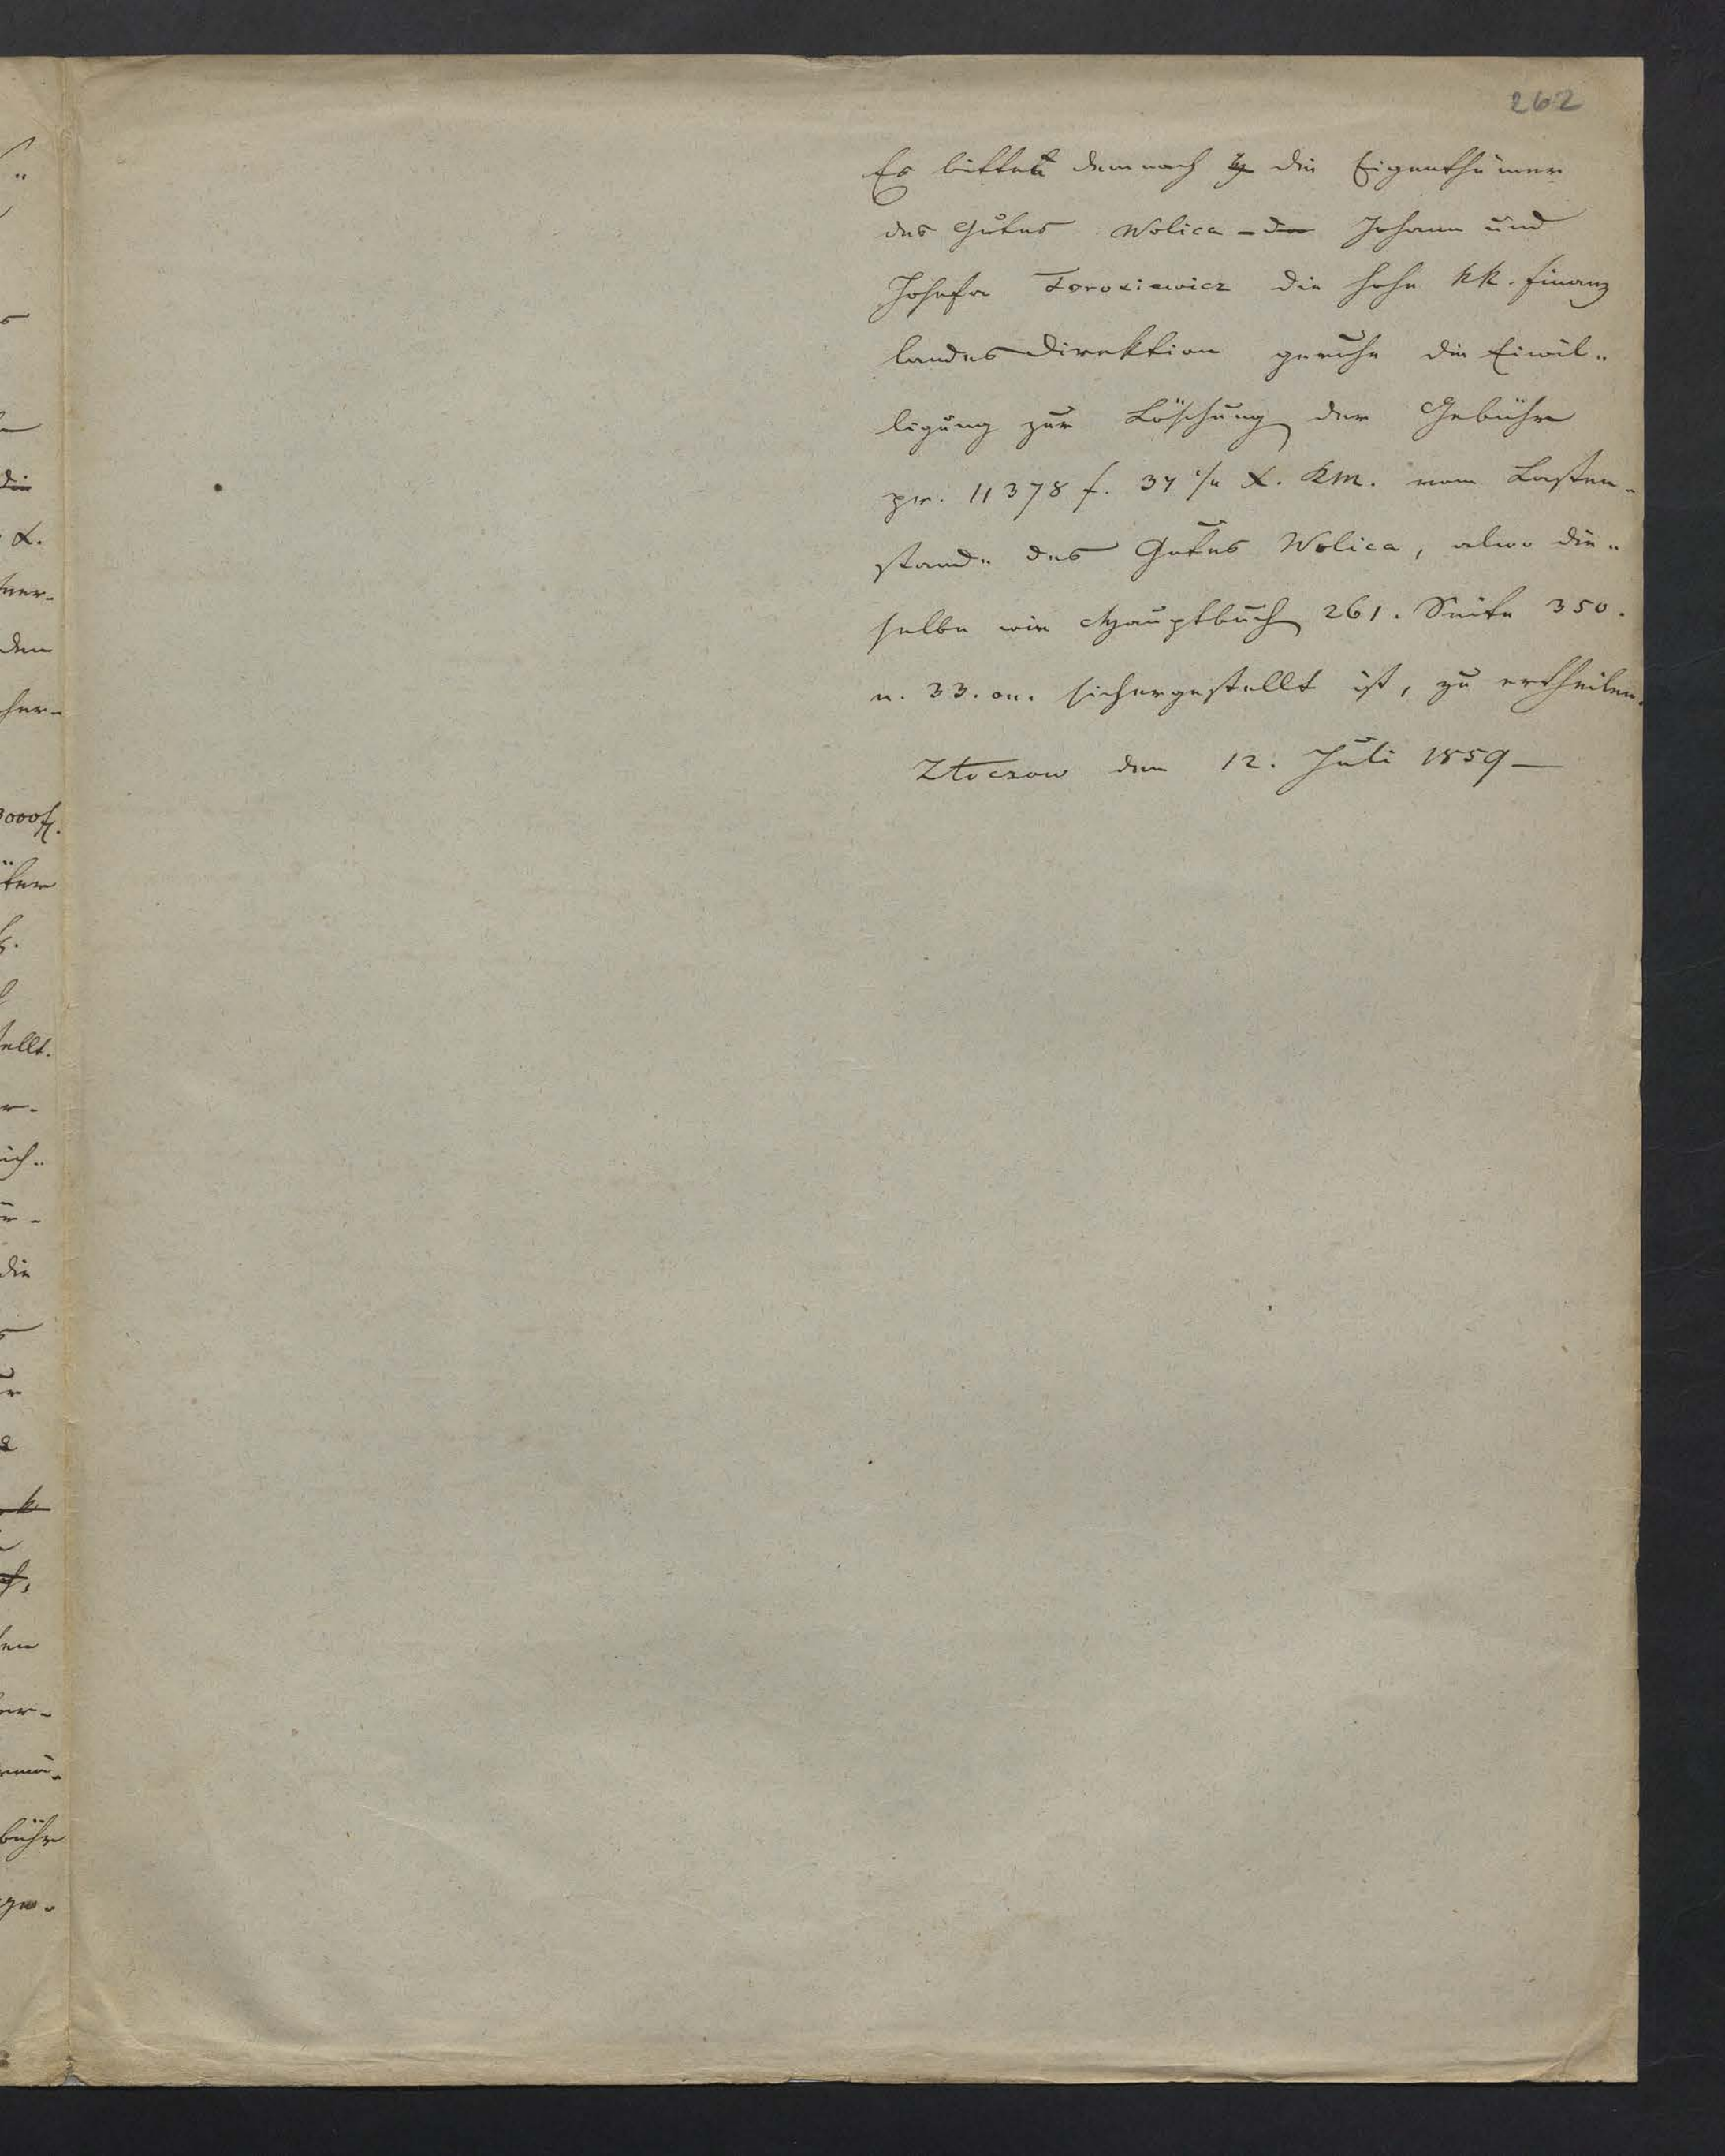 262
Es bitten demnach die Eigenthümer
des Gutes Wolica - Johann und
Josefa Torosiewicz die hohe kk. Finanz
Landes Direktion geruhe die Einwil„
ligung zur Löschung der Gebühr
pr. 11378 f. 34 x. KM. vom Lasten-
stande des Gutes Wolica, alwo die„
selbe wie Hauptbuch 261. Seite 350.
n. 33. on. sichergestellt ist, zu ertheilen.
Złoczow den 12. Juli 1859 —
die
x.
ner-
den
her-
3000 f.
ter
ellt.
r-
ich„
die
k
en
er-
bühr